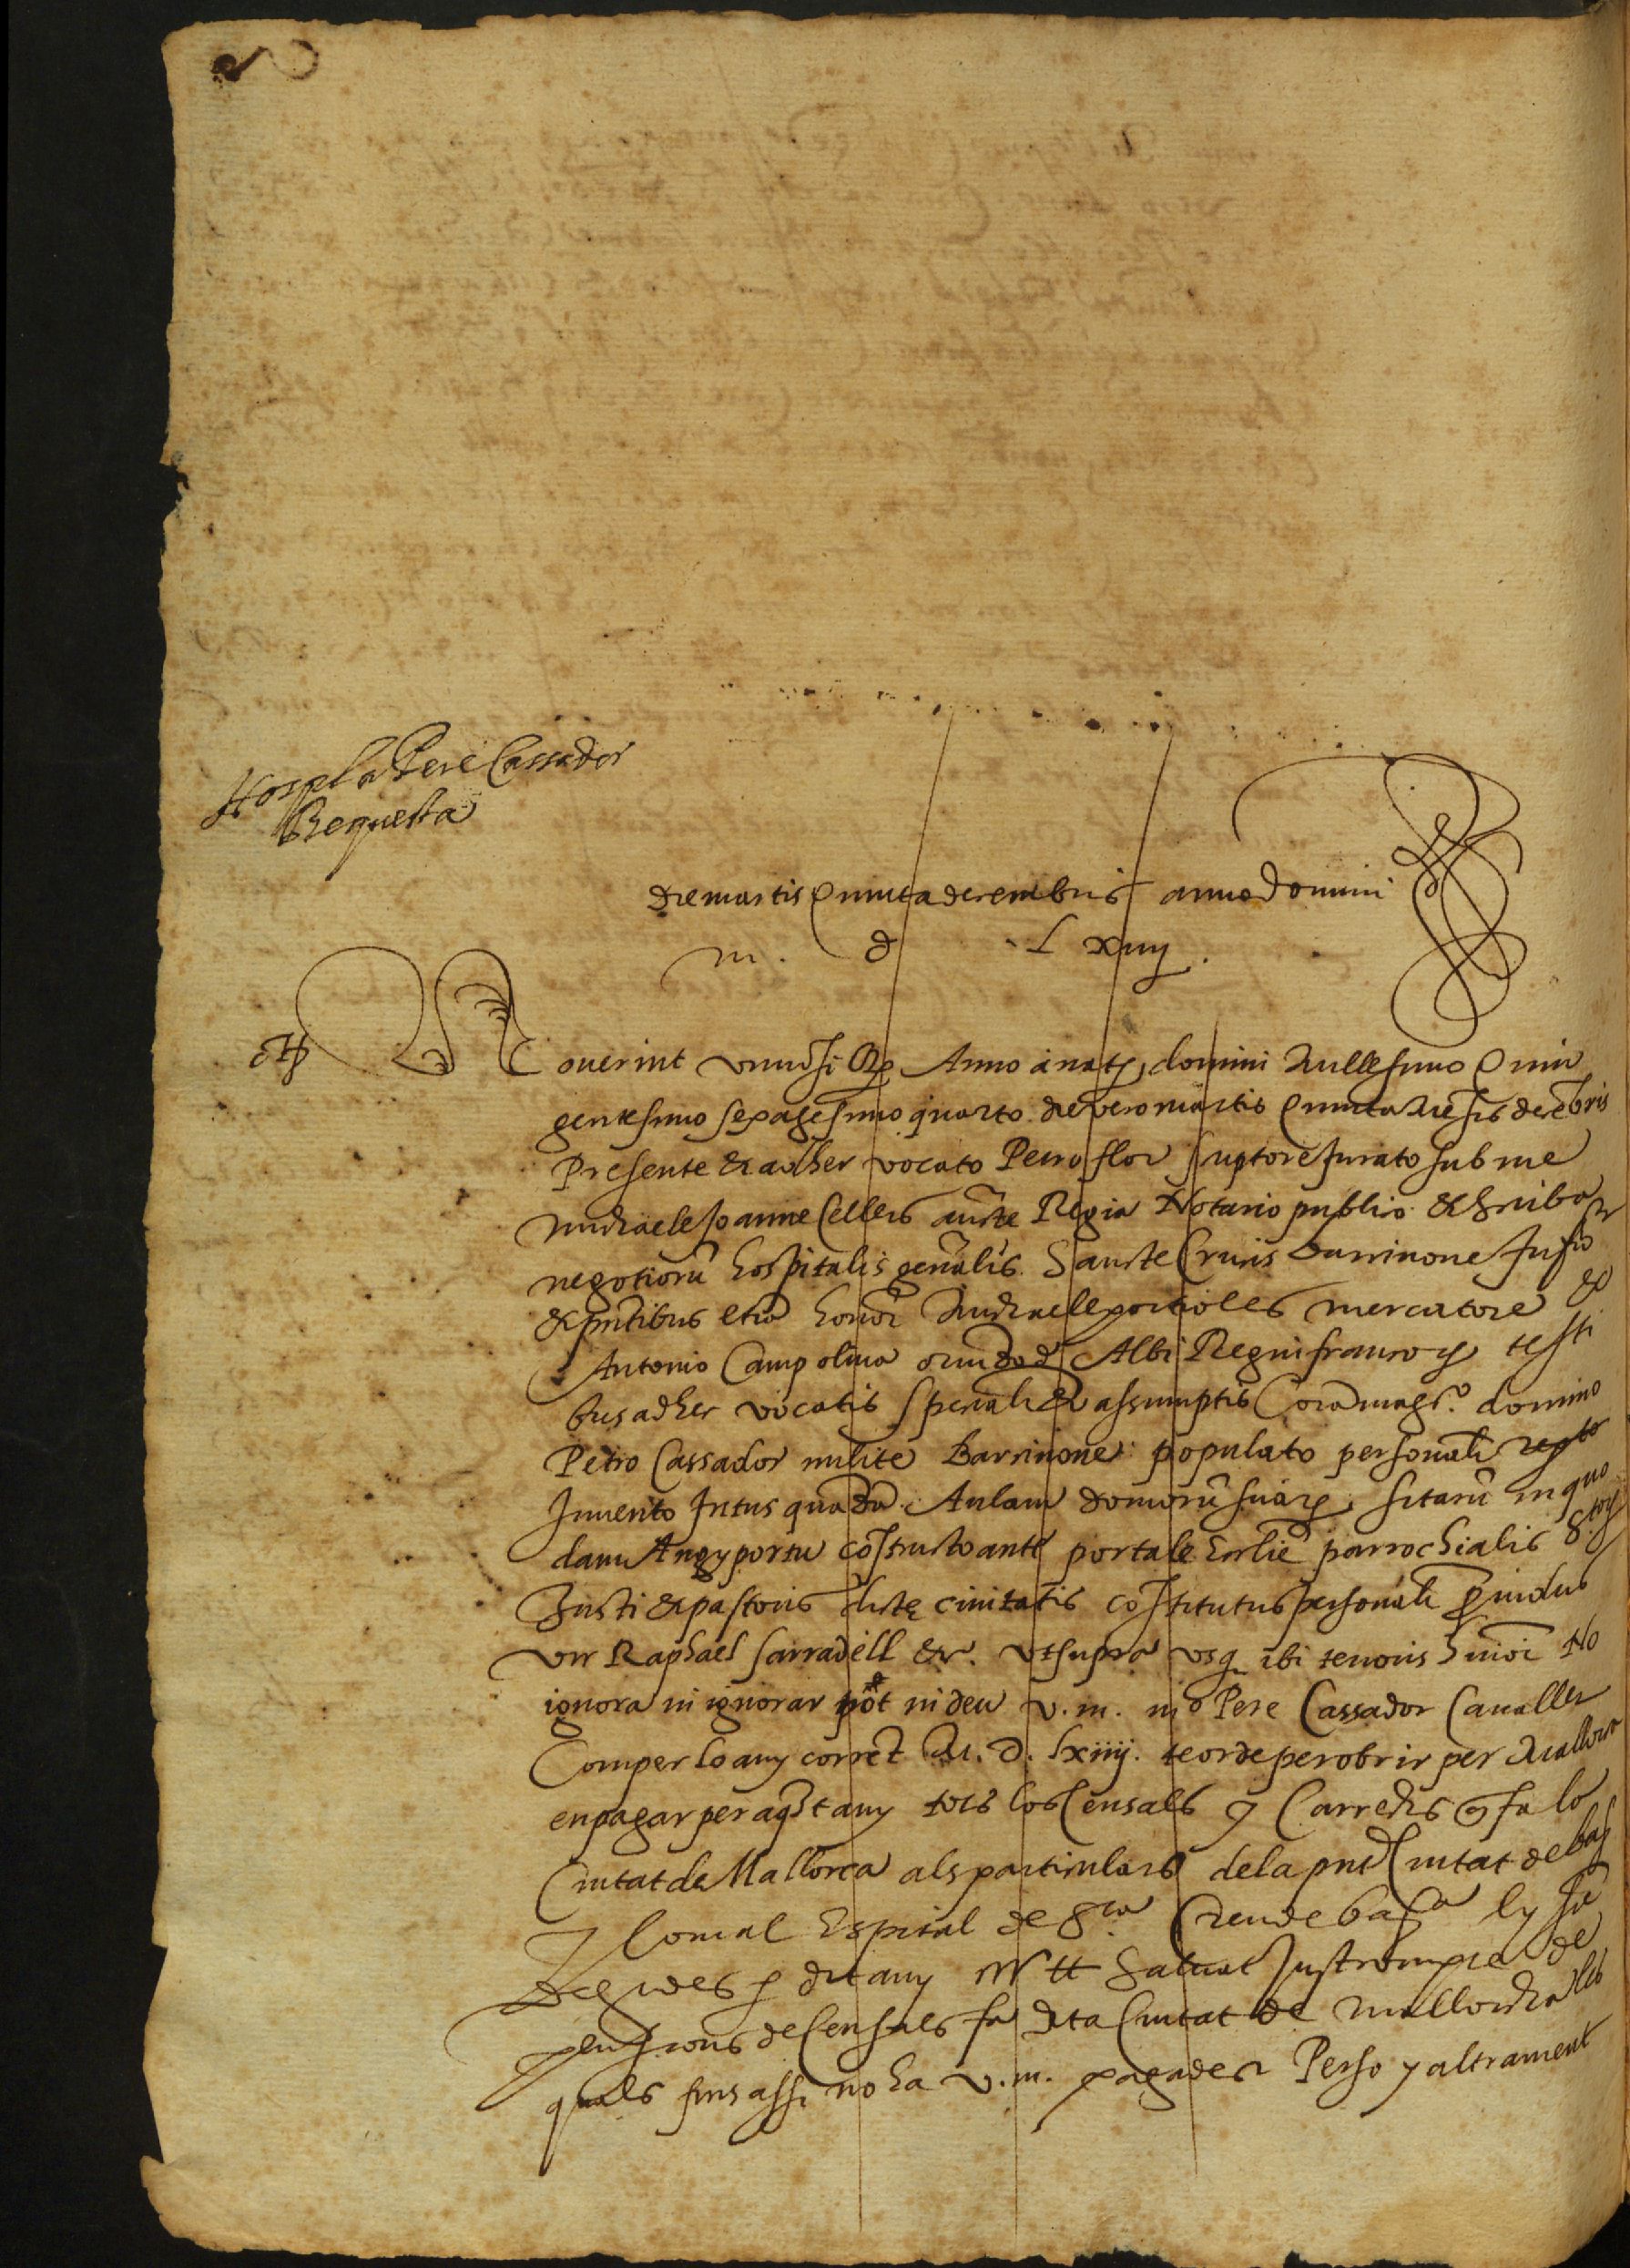 Hospl a Pere Cassador
Requesta
die martis quinta decembris anno domini
m. d. Lxiiij.
Nouerint vniũsi Qz Anno anatz domini Millesimo Quin
gentesimo sexagesimo quarto die vero martis quinta mẽsis decẽbris
Presente & ad hec vocato Petro flor scriptore Jurato sub me
michaele Joanne Cellers aucte Regia Notario publico & scriba
negotiorũ hospitalis geñalis Sancte Crucis barcinone
& pñtibus etiã honor michaelle portoles mercatore &
Antonio Campolina Albi Regni francorz testi
bus ad hec vocatis specialr & assumptis Corã magco domino
Petro Cassador milite Barcinone populato personalr repto
Inuento Intus quãdã Aulam domorũ suarz sitarũ in quo
dam Angyportu cõstructo ante portale Ecclie parrochialis Stor
Justi & pastoris dictę ciuitatis cõstitutus personalr prouidus
vir Raphael sarradell &c. vt supra vsq ibi tenoris hmõi No
ignora ni ignorar pot ni deu v. m. mo Pere Cassador Caualler
Com per lo any corrẽt M. D. lxiiij. te orde per obrir per Mallorca
en pagar per aq̃st any tots los Censals y Carrechs q fa la
Ciutat de Mallorca als particulars de la pñt Ciutat de bar
Y com al Espital de Sta Creu de bara ly siẽ
degudes p dit any de
pensions de Censals fa dita Ciutat de mallorcha les
quals fins assi no ha v. m. pagades Perso y altrament